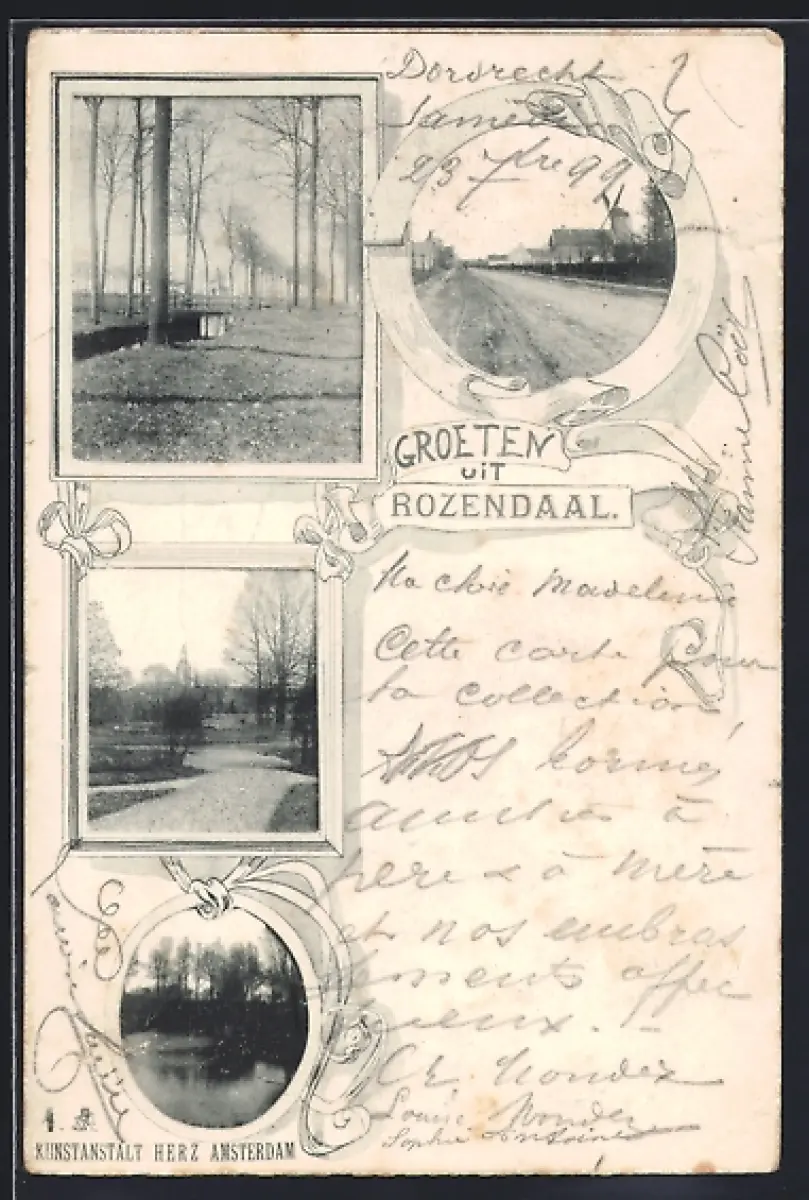 Dordrecht
Samedi
23 7bre 99
GROETEN
UIT
ROZENDAAL.
Ma chère Madeleine
Cette carte pour
ta collection
Nos bonnes
amitiés à
père & à mère
et nos embras
sements affec
tueux. -
Ch.
Louise
Sophie Antoine
1.
KUNSTANSTALT HERZ AMSTERDAM